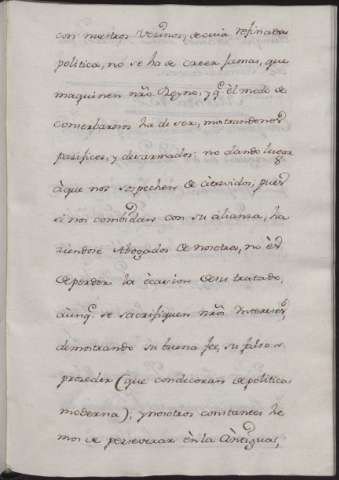 con nuestros Vecinos, de cuia refinada
politica, no se ha de creer jamas, que
maquinen nrõ. Reyno; y q.e el modo de
conserbarnos ha de ser, mostrandonos
pacificos, y desarmados: no dando lugar
à que nos sospechen de atrevidos, pues
si nos combidan con su alianza, ha
ziendose Abogados de nosotros, no és
de perder la ocasion de su tratado,
àunq.e se sacrifiquen nrõs. Intereses,
demostrando su buena fee, su falso
proceder (que condecoran de politica
moderna); y nosotros constantes he
mos de perseverar èn la Àntigua;